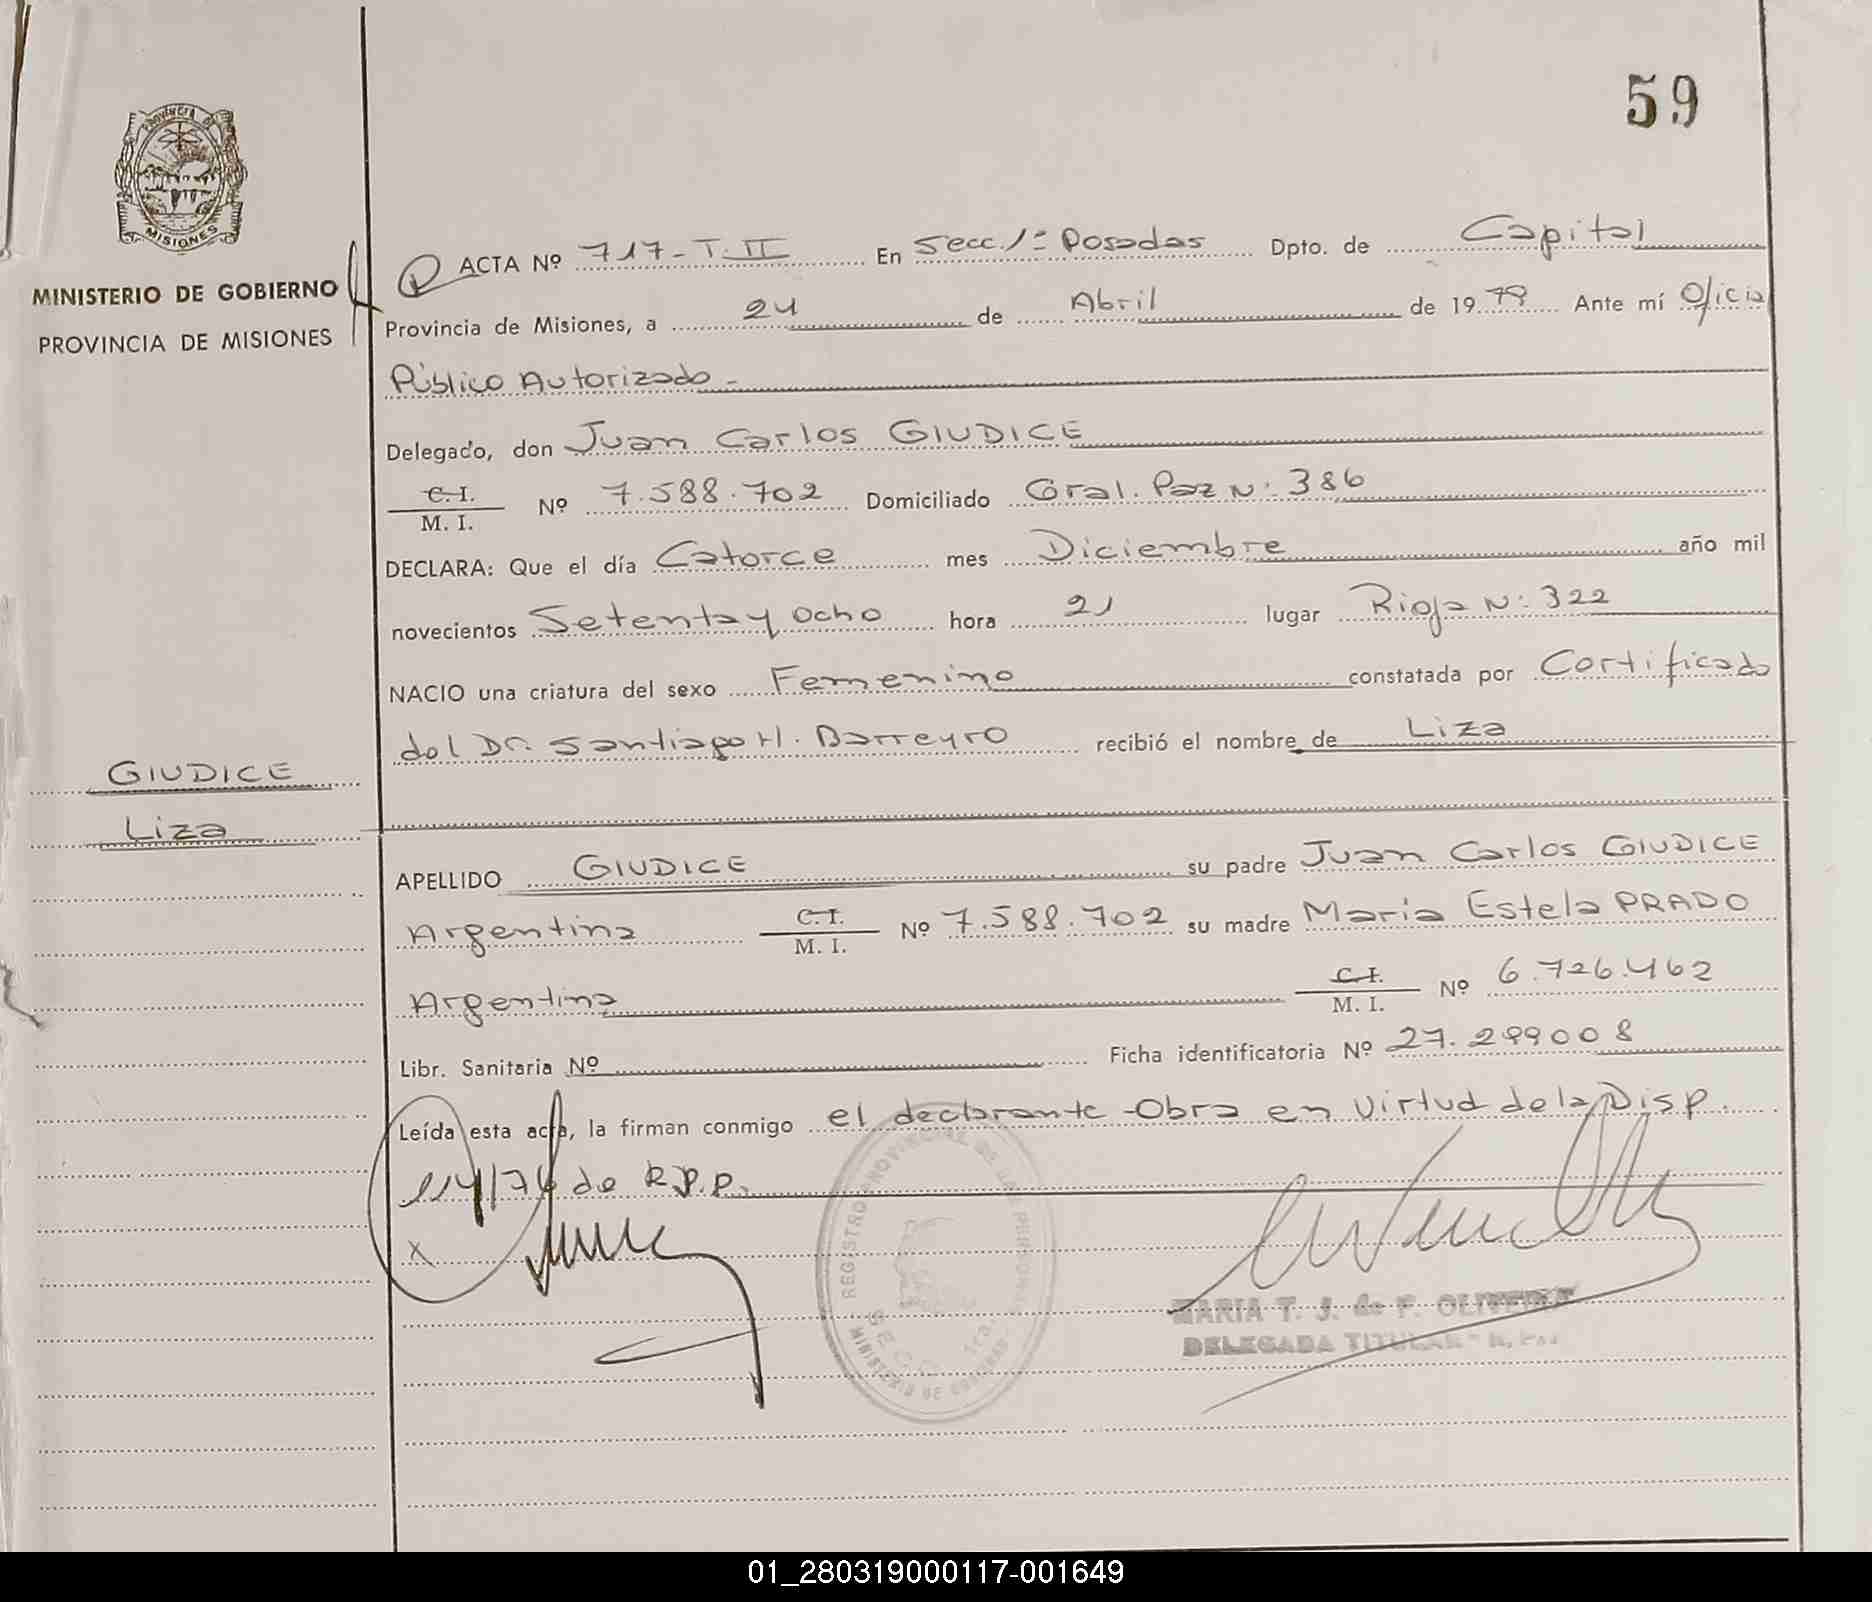 59
PROVINCIA DE
MISIONES
MINISTERIO DE GOBIERNO
PROVINCIA DE MISIONES
ACTA Nº 717-T.II En Secc. 1ª Posadas Dpto. de Capital
Provincia de Misiones, a 24 de Abril de 1979 Ante mí Oficia
Público Autorizado -
Delegado, don Juan Carlos GIUDICE
C. I. / M. I. Nº 7.588.702 Domiciliado Gral. Paz N: 386
DECLARA: Que el día Catorce mes Diciembre año mil
novecientos Setenta y ocho hora 21 lugar Rioja N: 322
NACIO una criatura del sexo Femenino constatada por Certificado
del Dr. Santiago H. Barreyro recibió el nombre de Liza
GIUDICE
Liza
APELLIDO GIUDICE su padre Juan Carlos GIUDICE
Argentina C. I. / M. I. Nº 7.588.702 su madre María Estela PRADO
Argentina C. I. / M. I. Nº 6.726.462
Libr. Sanitaria Nº Ficha identificatoria Nº 27.299008
Leída esta acta, la firman conmigo el declarante - Obra en virtud de la Disp.
114/76 de R.P.P.
X
REGISTRO PROVINCIAL DE LAS PERSONAS
SECC. 1ra.
MINISTERIO DE GOBIERNO
MARIA T. J. de F. OLIVEIRA
DELEGADA TITULAR
01_280319000117-001649